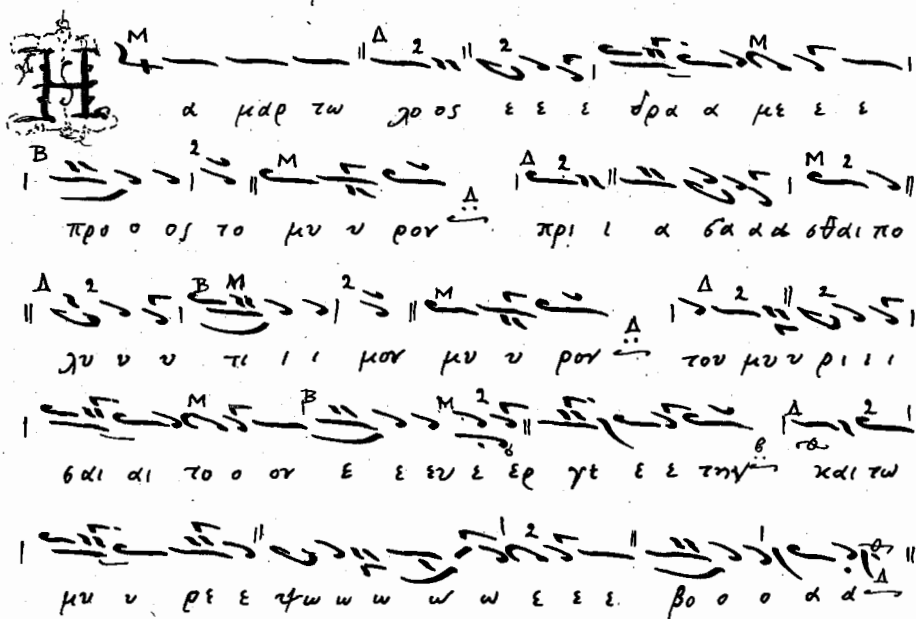 Η α μαρ τω λο ος ε ε ε δρα α με ε ε
προ ο ος το μυ υ ρον πρι ι α σα α α σθαι πο
λυ υ υ τι ι ι μον μυ υ ρον του μυ υ ρι ι ι
σαι αι το ο ον ε ε ευ ε ερ γε ε ε την και τω
μυ υ ρε ε ψω ω ω ω ω ε ε ε βο ο ο α α